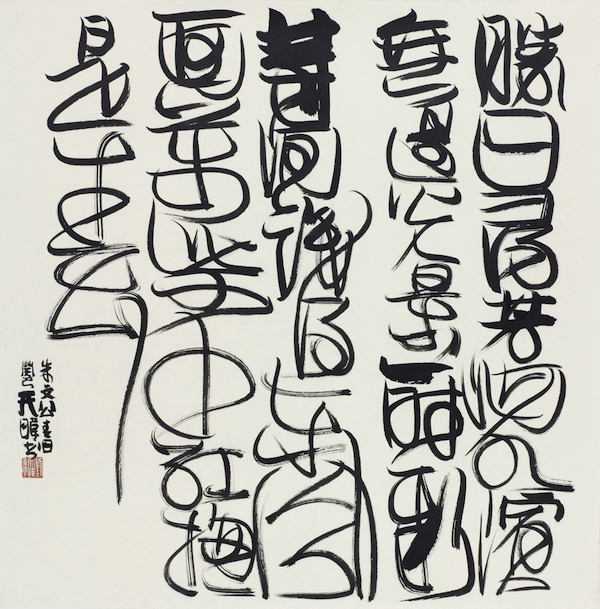 勝日尋芳泗水濱
無邊光景一時新
等閒識得東風
面萬紫千紅總
是春
朱文公春日
天暉書